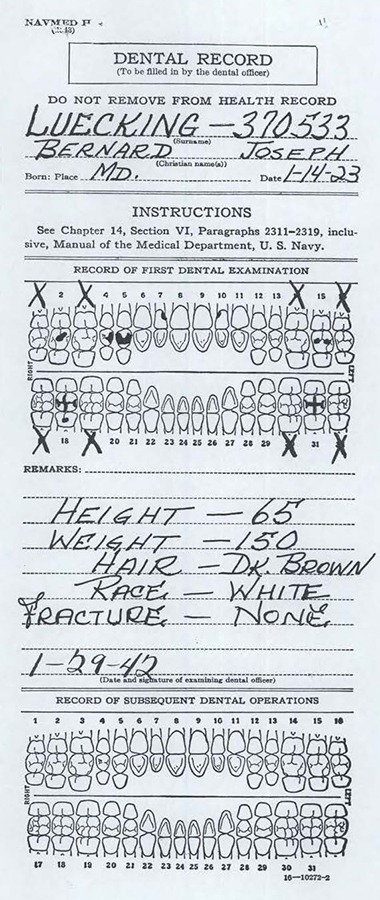 NAVMED H
DENTAL RECORD
(To be filled in by the dental officer)
DO NOT REMOVE FROM HEALTH RECORD
LUECKING - 370533
(Surname)
BERNARD JOSEPH
(Christian name(s))
Born: Place MD. Date 1-14-23
INSTRUCTIONS
See Chapter 14, Section VI, Paragraphs 2311–2319, inclu-
sive, Manual of the Medical Department, U. S. Navy.
RECORD OF FIRST DENTAL EXAMINATION
2 4 5 6 7 8 9 10 11 12 13 15
RIGHT LEFT
18 20 21 22 23 24 25 26 27 28 29 31
REMARKS:
HEIGHT - 65
WEIGHT - 150
HAIR - DK. BROWN
RACE - WHITE
FRACTURE - NONE
1-29-42
(Date and signature of examining dental officer)
RECORD OF SUBSEQUENT DENTAL OPERATIONS
1 2 3 4 5 6 7 8 9 10 11 12 13 14 15 16
RIGHT LEFT
17 18 19 20 21 22 23 24 25 26 27 28 29 30 31
16—10272-2